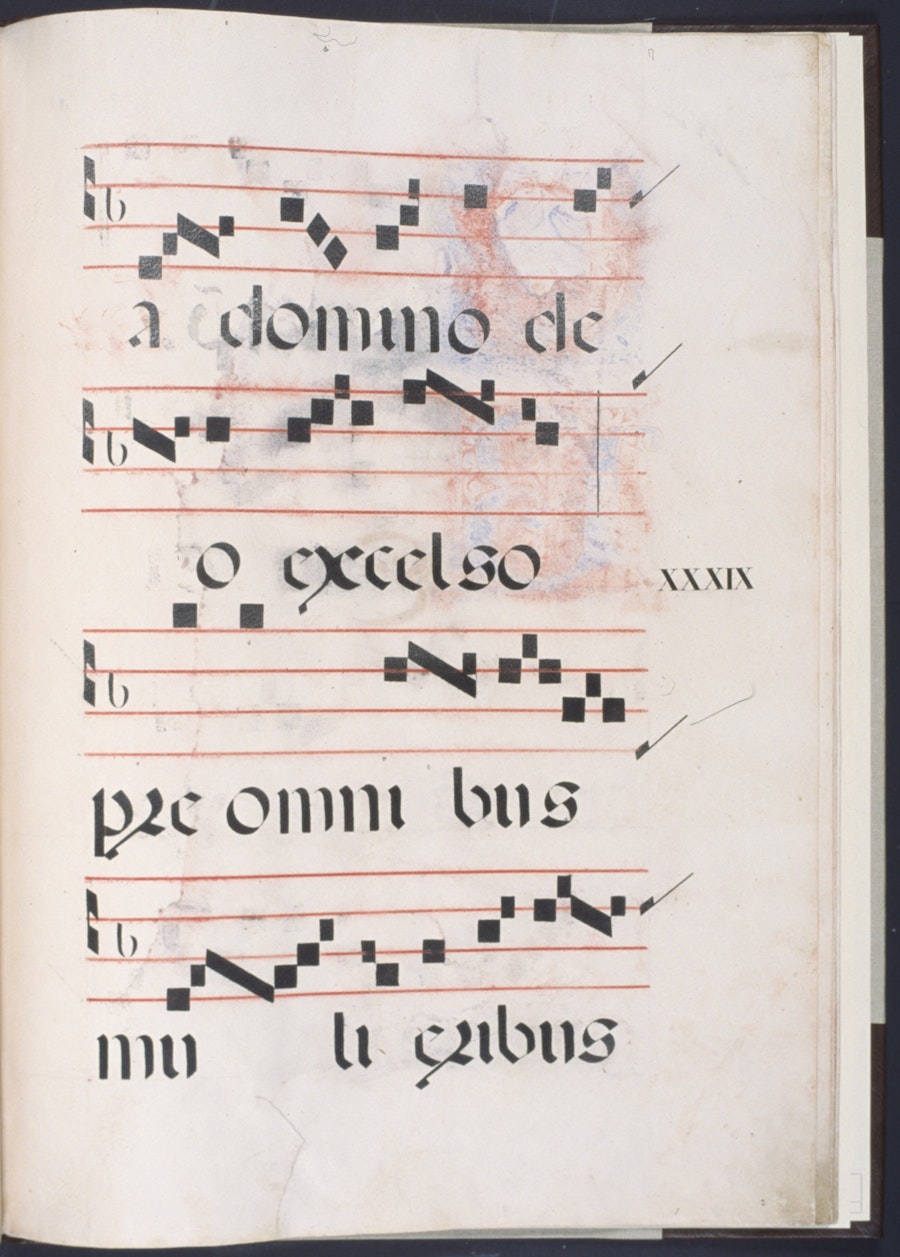 a domino de
o excelso
XXXIX
pre omni bus
mu li eribus